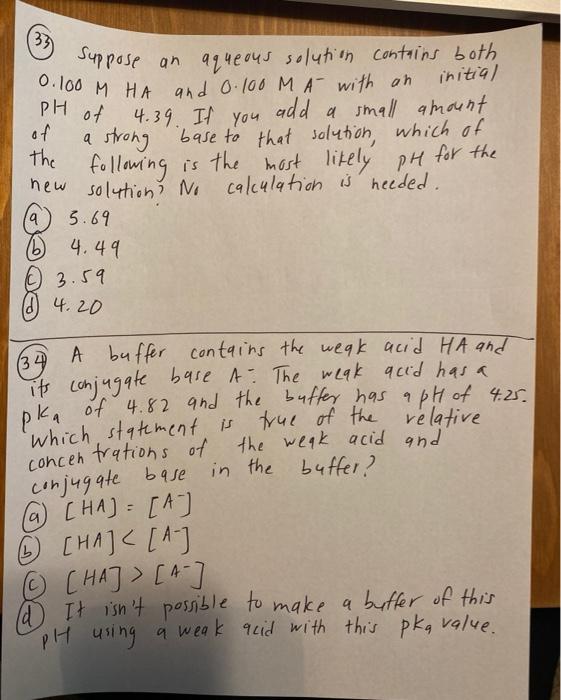 33 Suppose an aqueous solution contains both
0.100 M HA and 0.100 M A- with an initial
pH of 4.39. If you add a small amount
of a strong base to that solution, which of
the following is the most likely pH for the
new solution? No calculation is needed.
a 5.69
b 4.49
c 3.59
d 4.20
34 A buffer contains the weak acid HA and
its conjugate base A-. The weak acid has a
pka of 4.82 and the buffer has a pH of 4.25.
Which statement is true of the relative
concentrations of the weak acid and
conjugate base in the buffer?
a [HA] = [A-]
b [HA] < [A-]
c [HA] > [A-]
d It isn't possible to make a buffer of this
pH using a weak acid with this pka value.